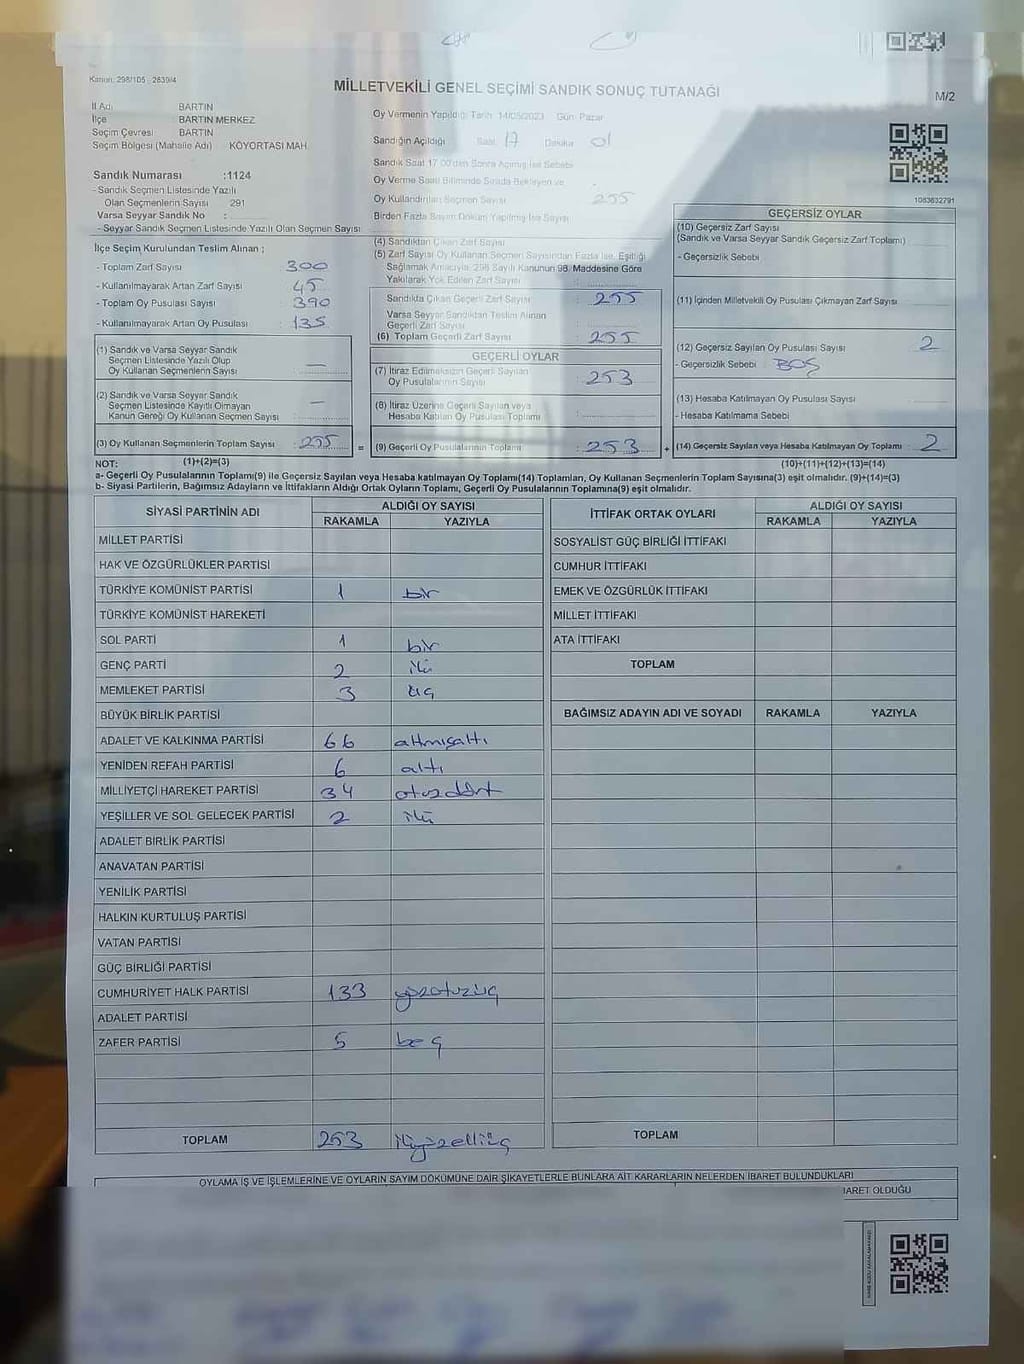 Kanun: 298/105 2839/4
MİLLETVEKİLİ GENEL SEÇİMİ SANDIK SONUÇ TUTANAĞI
M/2
İl Adı BARTIN
İlçe BARTIN MERKEZ
Seçim Çevresi BARTIN
Seçim Bölgesi (Mahalle Adı) KÖYORTASI MAH.
Oy Vermenin Yapıldığı Tarih 14/05/2023 Gün Pazar
Sandığın Açıldığı Saat 17 Dakika 01
Sandık Saat 17:00'den Sonra Açılmış İse Sebebi
Oy Verme Saati Bitiminde Sırada Bekleyen ve
Oy Kullandırılan Seçmen Sayısı 255
Birden Fazla Sayım Döküm Yapılmış İse Sayısı
Sandık Numarası :1124
- Sandık Seçmen Listesinde Yazılı
Olan Seçmenlerin Sayısı 291
Varsa Seyyar Sandık No :
- Seyyar Sandık Seçmen Listesinde Yazılı Olan Seçmen Sayısı
1083632791
İlçe Seçim Kurulundan Teslim Alınan ;
- Toplam Zarf Sayısı : 300
- Kullanılmayarak Artan Zarf Sayısı : 45
- Toplam Oy Pusulası Sayısı : 390
- Kullanılmayarak Artan Oy Pusulası : 135
(1) Sandık ve Varsa Seyyar Sandık
Seçmen Listesinde Yazılı Olup
Oy Kullanan Seçmenlerin Sayısı : —
(2) Sandık ve Varsa Seyyar Sandık
Seçmen Listesinde Kayıtlı Olmayan
Kanun Gereği Oy Kullanan Seçmen Sayısı : —
(3) Oy Kullanan Seçmenlerin Toplam Sayısı : 255 =
(1)+(2)=(3)
(4) Sandıktan Çıkan Zarf Sayısı
(5) Zarf Sayısı Oy Kullanan Seçmen Sayısından Fazla İse, Eşitliği
Sağlamak Amacıyla, 298 Sayılı Kanunun 98. Maddesine Göre
Yakılarak Yok Edilen Zarf Sayısı :
Sandıkta Çıkan Geçerli Zarf Sayısı : 255
Varsa Seyyar Sandıktan Teslim Alınan
Geçerli Zarf Sayısı :
(6) Toplam Geçerli Zarf Sayısı : 255
GEÇERLİ OYLAR
(7) İtiraz Edilmeksizin Geçerli Sayılan
Oy Pusulalarının Sayısı : 253
(8) İtiraz Üzerine Geçerli Sayılan veya
Hesaba Katılan Oy Pusulası Toplamı :
(9) Geçerli Oy Pusulalarının Toplamı : 253 +
GEÇERSİZ OYLAR
(10) Geçersiz Zarf Sayısı
(Sandık ve Varsa Seyyar Sandık Geçersiz Zarf Toplamı)
- Geçersizlik Sebebi
(11) İçinden Milletvekili Oy Pusulası Çıkmayan Zarf Sayısı
(12) Geçersiz Sayılan Oy Pusulası Sayısı 2
- Geçersizlik Sebebi : BOŞ
(13) Hesaba Katılmayan Oy Pusulası Sayısı
- Hesaba Katılmama Sebebi
(14) Geçersiz Sayılan veya Hesaba Katılmayan Oy Toplamı 2
(10)+(11)+(12)+(13)=(14)
NOT:
a- Geçerli Oy Pusulalarının Toplamı(9) ile Geçersiz Sayılan veya Hesaba katılmayan Oy Toplamı(14) Toplamları, Oy Kullanan Seçmenlerin Toplam Sayısına(3) eşit olmalıdır. (9)+(14)=(3)
b- Siyasi Partilerin, Bağımsız Adayların ve İttifakların Aldığı Ortak Oyların Toplamı, Geçerli Oy Pusulalarının Toplamına(9) eşit olmalıdır.
SİYASİ PARTİNİN ADI ALDIĞI OY SAYISI
RAKAMLA YAZIYLA
MİLLET PARTİSİ
HAK VE ÖZGÜRLÜKLER PARTİSİ
TÜRKİYE KOMÜNİST PARTİSİ 1 bir
TÜRKİYE KOMÜNİST HAREKETİ
SOL PARTİ 1 bir
GENÇ PARTİ 2 iki
MEMLEKET PARTİSİ 3 üç
BÜYÜK BİRLİK PARTİSİ
ADALET VE KALKINMA PARTİSİ 66 altmışaltı
YENİDEN REFAH PARTİSİ 6 altı
MİLLİYETÇİ HAREKET PARTİSİ 34 otuzdört
YEŞİLLER VE SOL GELECEK PARTİSİ 2 iki
ADALET BİRLİK PARTİSİ
ANAVATAN PARTİSİ
YENİLİK PARTİSİ
HALKIN KURTULUŞ PARTİSİ
VATAN PARTİSİ
GÜÇ BİRLİĞİ PARTİSİ
CUMHURİYET HALK PARTİSİ 133 yüzotuzüç
ADALET PARTİSİ
ZAFER PARTİSİ 5 beş
TOPLAM 253 ikiyüzelliüç
İTTİFAK ORTAK OYLARI ALDIĞI OY SAYISI
RAKAMLA YAZIYLA
SOSYALİST GÜÇ BİRLİĞİ İTTİFAKI
CUMHUR İTTİFAKI
EMEK VE ÖZGÜRLÜK İTTİFAKI
MİLLET İTTİFAKI
ATA İTTİFAKI
TOPLAM
BAĞIMSIZ ADAYIN ADI VE SOYADI RAKAMLA YAZIYLA
TOPLAM
OYLAMA İŞ VE İŞLEMLERİNE VE OYLARIN SAYIM DÖKÜMÜNE DAİR ŞİKAYETLERLE BUNLARA AİT KARARLARIN NELERDEN İBARET BULUNDUKLARI
BARET OLDUĞU